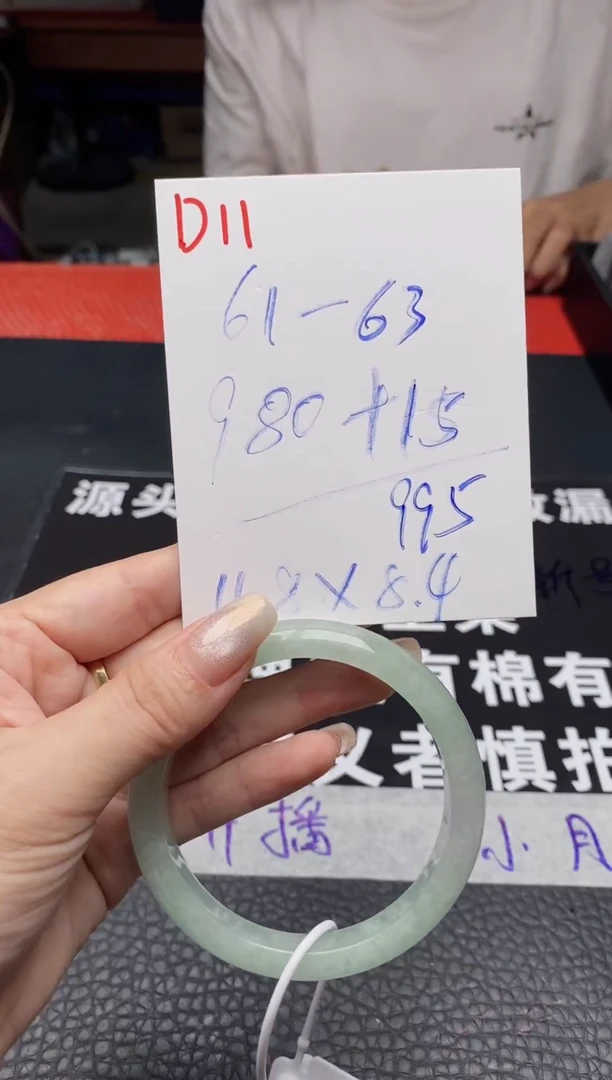 D11
61-63
980+15
995
11.8×8.4
源头
漏
有棉有
义者慎拍
播
小月